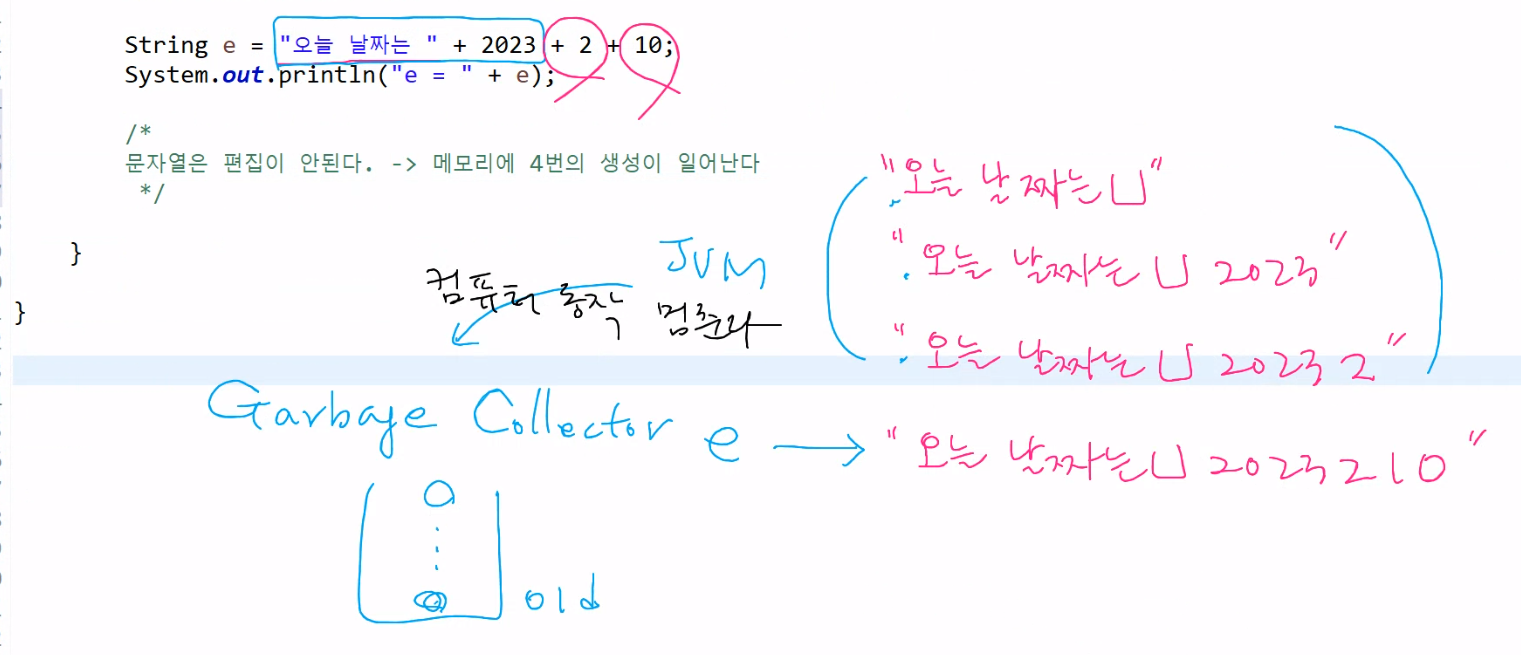 String e = "오늘 날짜는 " + 2023 + 2 + 10;
System.out.println("e = " + e);
/*
문자열은 편집이 안된다. -> 메모리에 4번의 생성이 일어난다
*/
}
}
"오늘 날짜는␣"
"오늘 날짜는␣2023"
"오늘 날짜는␣20232"
JVM
컴퓨터 동작 멈춰라
Garbage Collector
e → "오늘 날짜는␣2023210"
old